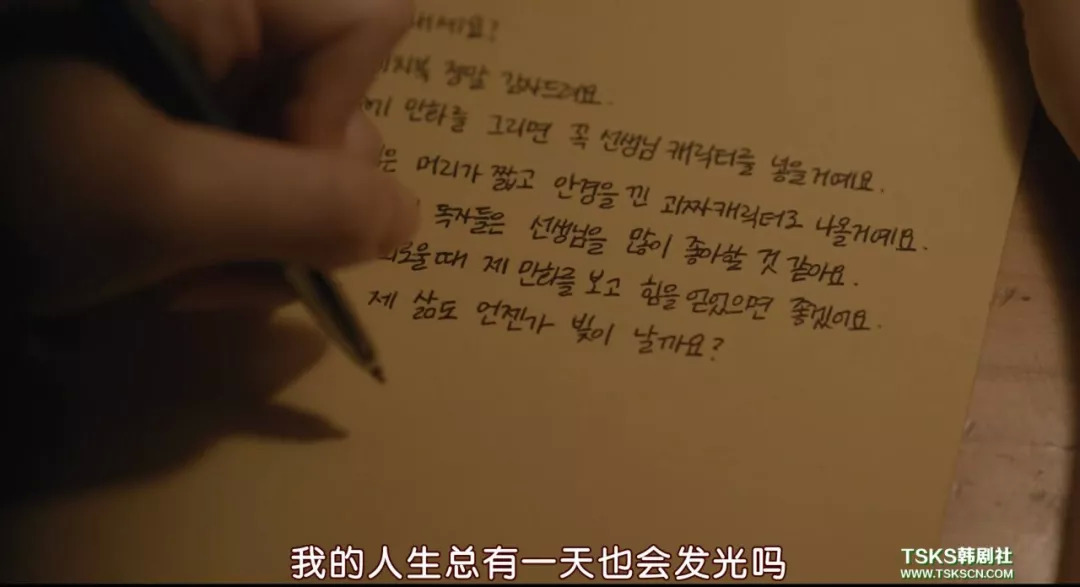 세요?
정말 감사드려요.
만화를 그리면 꼭 선생님 캐릭터를 넣을거예요.
은 머리가 짧고 안경을 낀 괴짜캐릭터로 나올거예요.
독자들은 선생님을 많이 좋아할 것 같아요.
로울때 제 만화를 보고 힘을 얻었으면 좋겠어요.
제 삶도 언젠가 빛이 날까요?
我的人生总有一天也会发光吗
TSKS韩剧社
WWW.TSKSCN.COM